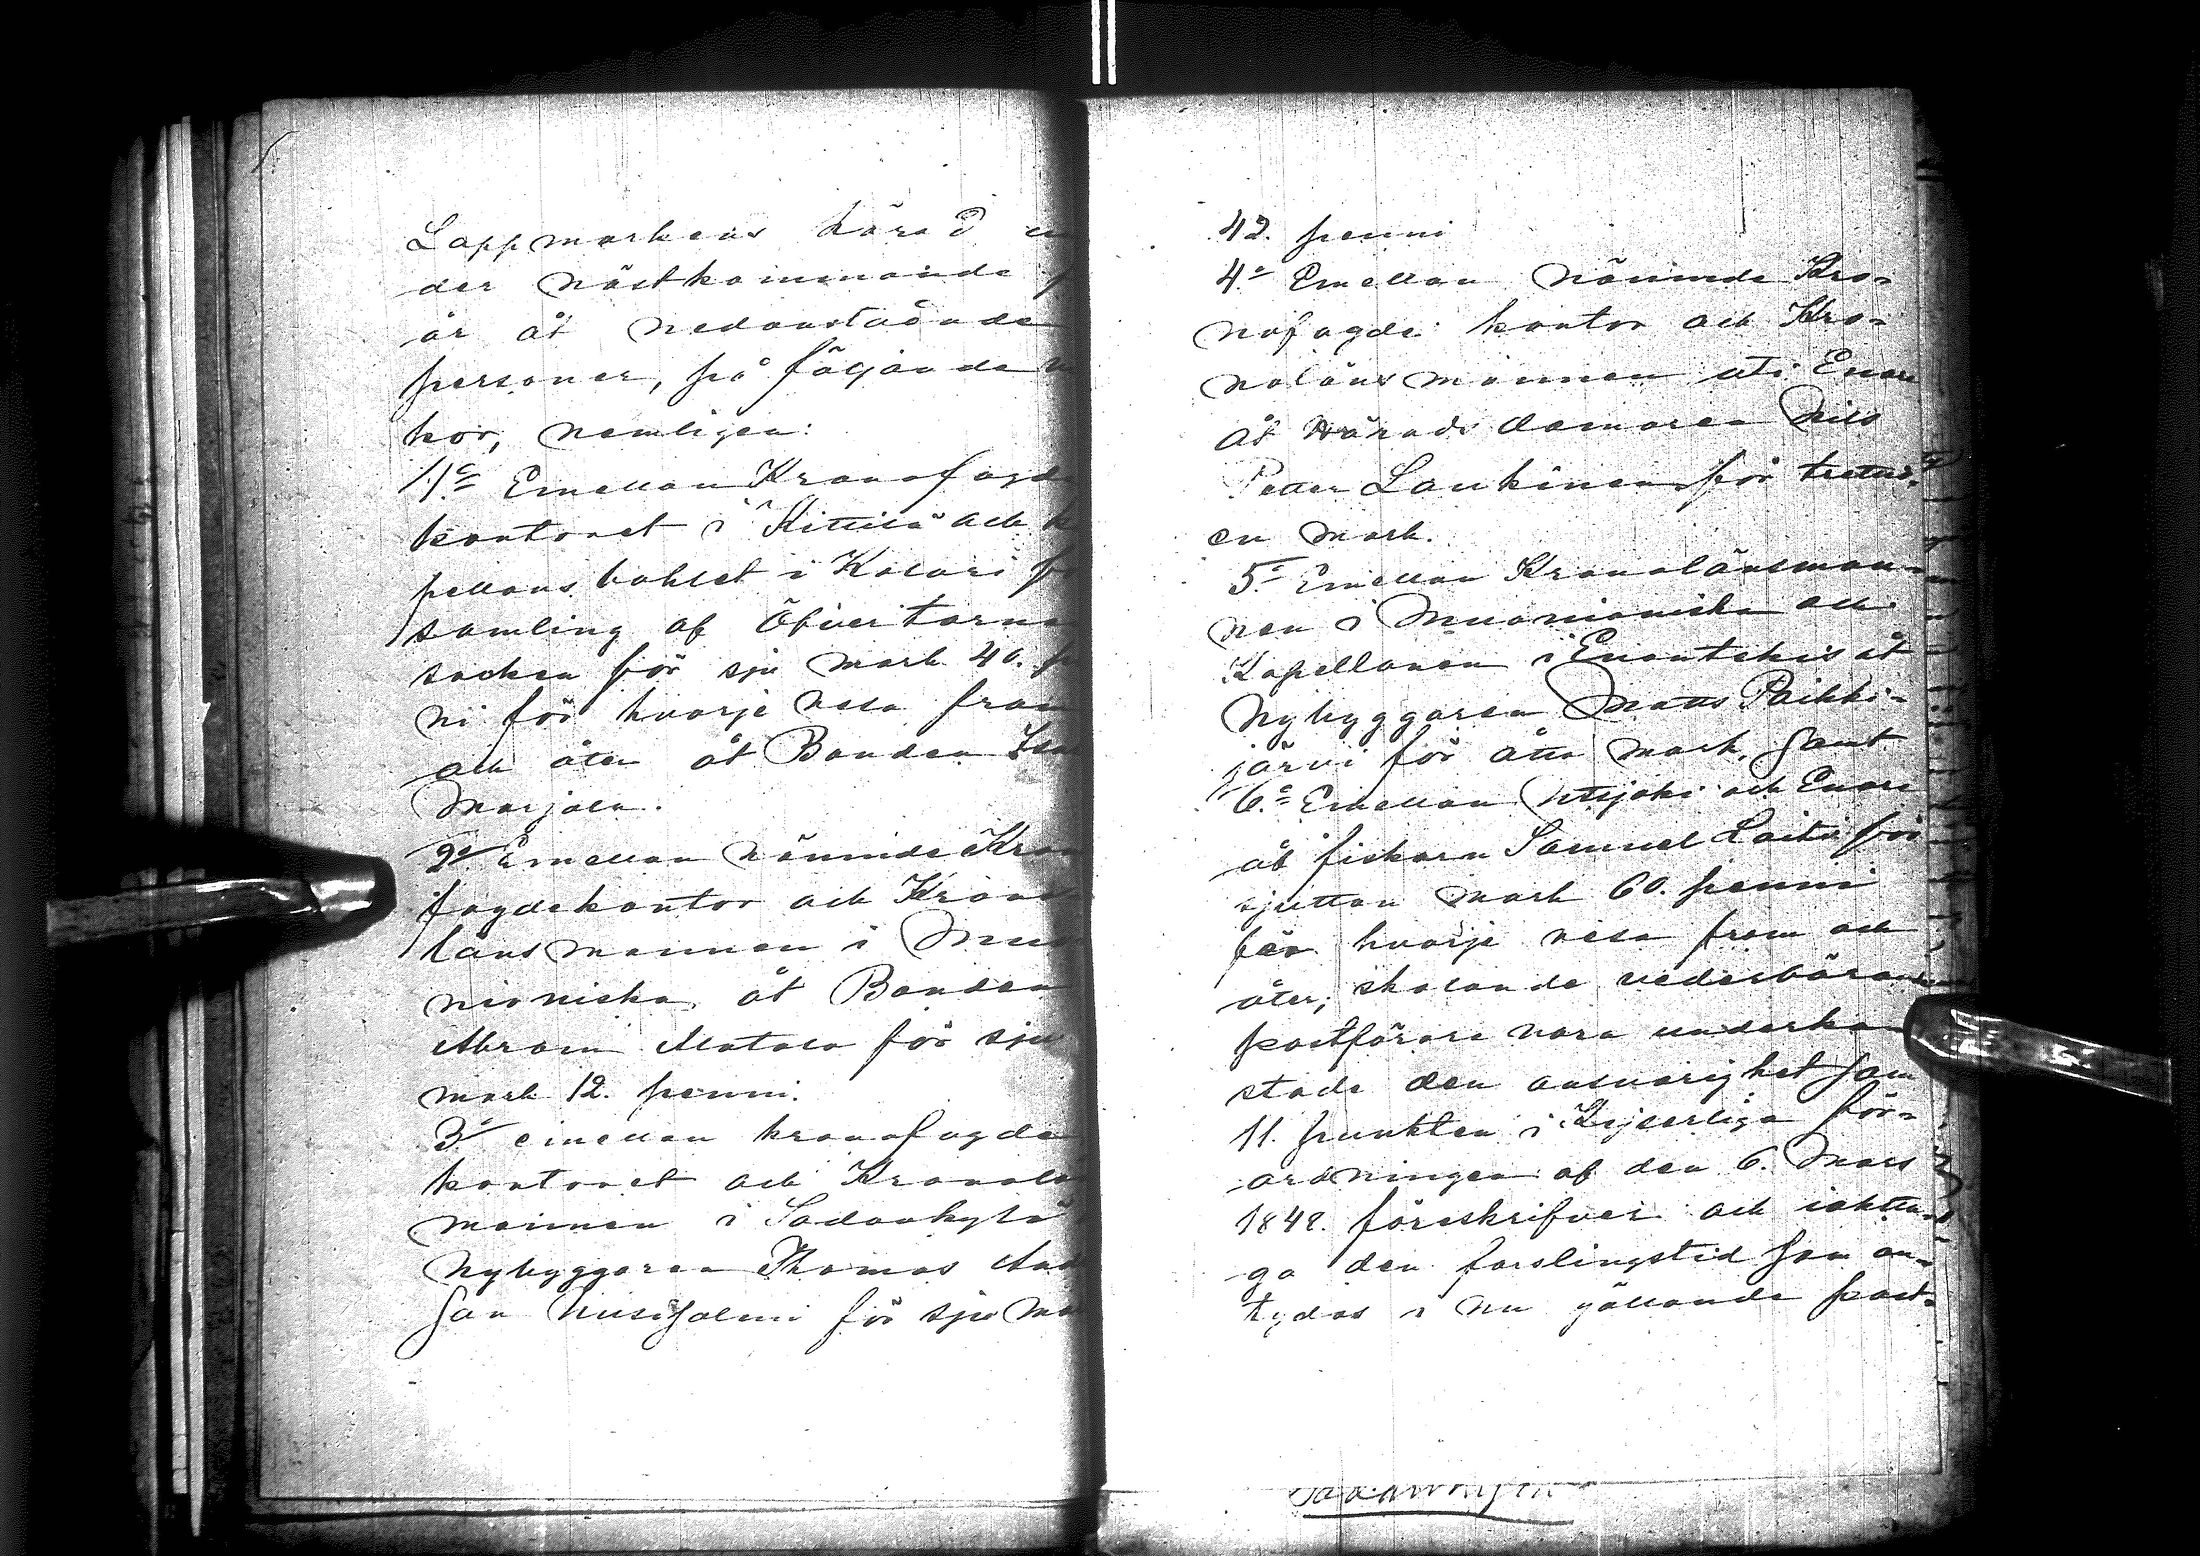 Lappmarkens härad un
der nästkommande
år åt nedanstående
personer, på följande
kor, nemligen:
1:o Emellan Kronofogd
kontoret i Kittilä och k
pellans bohlet i Kolari f
samling af Öfvertorne
socken för sju mark 40. p
ni för hvarje resa fram
och åter åt Bonden Isa
Marjala.
2:o Emellan nämnde Kron
fogdekontor och Krono
länsmannen i Muo
nioniska åt Bonden
Abram Matala för sju
mark 12. penni.
3:o emellan kronofogde
kontoret och Kronolä
mannen i Sodankylä
Nybyggaren Thomas And
son Kusisalmi för sju ma
42. penni
4:o Emellan nämnde Kro-
nofogde kontor och Kro-
nolänsmannen uti Enare
åt Härads domaren Nils
Petter Laukinen för tretti-
en mark.
5:o Emellan Kronolänsman-
nen i Muonioniska och
Kapellanen i Enontekis åt
Nybyggaren Matts Paikki-
järvi för åtta mark, samt
6:o Emellan Utsjoki och Enare
åt fiskarn Samuel Laiti för
sjutton mark 60. penni
för hvarje resa fram och
åter, skolande vederbörande
postförare vara underka
stade den ansvarighet som
11. punkten i Kejserliga för-
ordningen af den 6. Mars
1848. föreskrifver och iaktta-
ga den forslingstid som an-
tydas i nu gällande post-